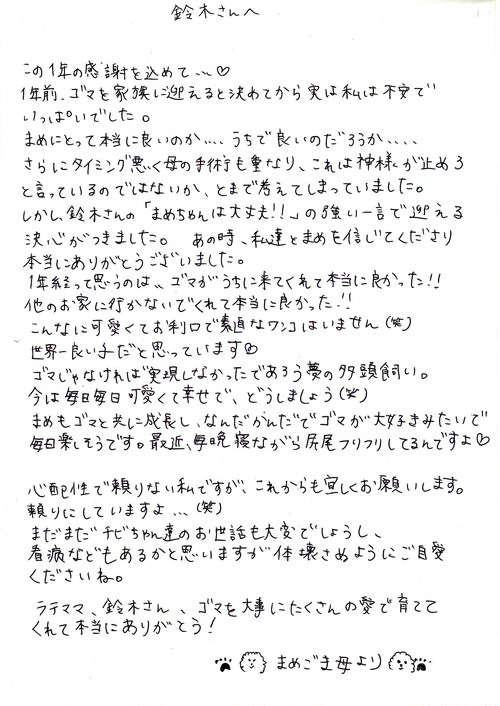 鈴木さんへ
この1年の感謝を込めて…♡
1年前、ゴマを家族に迎えると決めてから実は私は不安で
いっぱいでした。
まめにとって本当に良いのか‥‥うちで良いのだろうか‥‥
さらにタイミング悪く母の手術も重なり、これは神様が止めろ
と言っているのではないか、とまで考えてしまっていました。
しかし鈴木さんの「まめちゃんは大丈夫!!」の強い一言で迎える
決心がつきました。 あの時、私達とまめを信じてくださり
本当にありがとうございました。
1年経って思うのは、、ゴマがうちに来てくれて本当に良かった!!
他のお家に行かないでくれて本当に良かった!!
こんなに可愛くてお利口で素直なワンコはいません(笑)
世界一良い子だと思っています♡
ゴマじゃなければ実現しなかったであろう夢の多頭飼い。
今は毎日毎日可愛くて幸せで、どうしましょう(笑)
まめもゴマと共に成長し、なんだかんだでゴマが大好きみたいで
毎日楽しそうです。最近、毎晩寝ながら尻尾フリフリしてるんですよ♡
心配性で頼りない私ですが、これからも宜しくお願いします。
頼りにしていますよ…(笑)
まだまだチビちゃん達のお世話も大変でしょうし、
看病などもあるかと思いますが体壊さぬようにご自愛
くださいね。
ラテママ、鈴木さん、ゴマを大事にたくさんの愛で育てて
くれて本当にありがとう!
まめごま母より